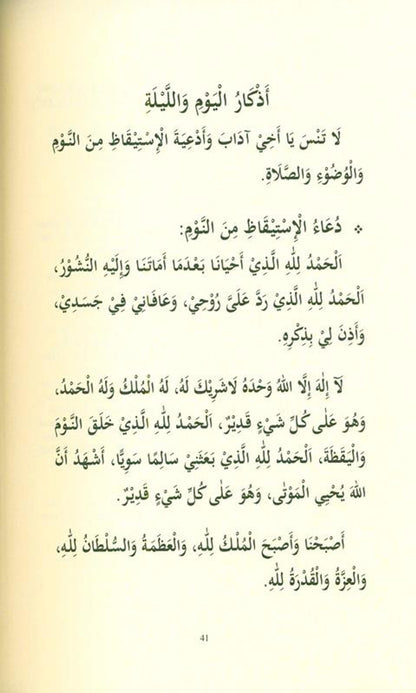 أَذْكَارُ الْيَوْمِ وَاللَّيْلَةِ
لَا تَنْسَ يَا أَخِيْ آدَابَ وَأَدْعِيَةَ الْإِسْتِيْقَاظِ مِنَ النَّوْمِ
وَالْوُضُوْءِ وَالصَّلَاةِ.
* دُعَاءُ الْإِسْتِيْقَاظِ مِنَ النَّوْمِ:
اَلْحَمْدُ لِلّٰهِ الَّذِيْ أَحْيَانَا بَعْدَمَا أَمَاتَنَا وَإِلَيْهِ النُّشُوْرُ،
اَلْحَمْدُ لِلّٰهِ الَّذِيْ رَدَّ عَلَيَّ رُوْحِيْ، وَعَافَانِيْ فِيْ جَسَدِيْ،
وَأَذِنَ لِيْ بِذِكْرِهِ.
لَآ إِلٰهَ إِلَّا اللهُ وَحْدَهُ لَاشَرِيْكَ لَهُ، لَهُ الْمُلْكُ وَلَهُ الْحَمْدُ،
وَهُوَ عَلٰى كُلِّ شَيْءٍ قَدِيْرٌ، اَلْحَمْدُ لِلّٰهِ الَّذِيْ خَلَقَ النَّوْمَ
وَالْيَقَظَةَ، اَلْحَمْدُ لِلّٰهِ الَّذِيْ بَعَثَنِيْ سَالِمًا سَوِيًّا، أَشْهَدُ أَنَّ
اللهَ يُحْيِي الْمَوْتٰى، وَهُوَ عَلٰى كُلِّ شَيْءٍ قَدِيْرٌ.
أَصْبَحْنَا وَأَصْبَحَ الْمُلْكُ لِلّٰهِ، وَالْعَظَمَةُ وَالسُّلْطَانُ لِلّٰهِ،
وَالْعِزَّةُ وَالْقُدْرَةُ لِلّٰهِ.
41